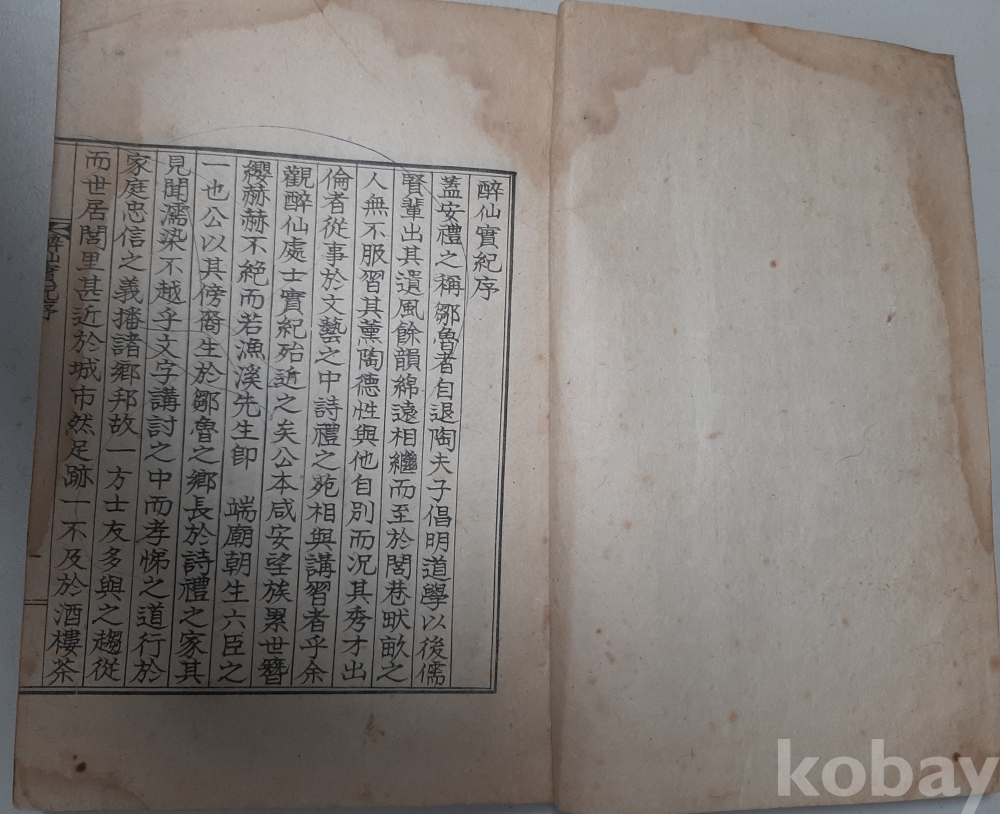 醉仙實紀序
蓋安禮之稱鄒魯者自退陶夫子倡明道學以後儒
賢輩出其遺風餘韻綿遠相繼而至於閭巷畎畝之
人無不服習其薰陶德性與他自別而況其秀才出
倫者從事於文藝之中詩禮之苑相與講習者乎余
觀醉仙處士實紀殆近之矣公本咸安望族累世簪
纓赫赫不絶而若漁溪先生卽 端廟朝生六臣之
一也公以其傍裔生於鄒魯之鄕長於詩禮之家其
見聞濡染不越乎文字講討之中而孝悌之道行於
家庭忠信之義播諸鄕邦故一方士友多與之趨從
而世居閭里甚近於城市然足跡一不及於酒樓茶
醉仙實紀序
kobay